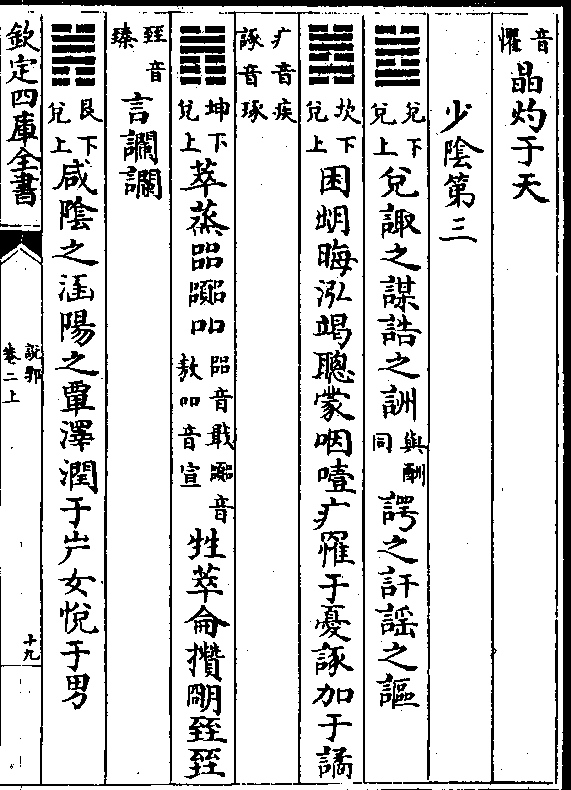 音
懼
晶灼于天
少陰第三
兌下
兌上
兌諏之謀誥之詶
與酬
同
諤之訐謡之謳
坎下
兌上
困䎽晦泓竭聰蒙咽噎疒罹于憂諑加于譎
疒音疾
諑音琢
坤下
兌上
萃蒸㗊嚻吅
㗊音戢嚻音
敖吅音宣
甡萃侖攢朙臸臸
臸音
臻
言讕讕
艮下
兌上
咸陰之涵陽之覃澤潤于屵女悅于男
欽定四庫全書
説郛
卷二上
十九